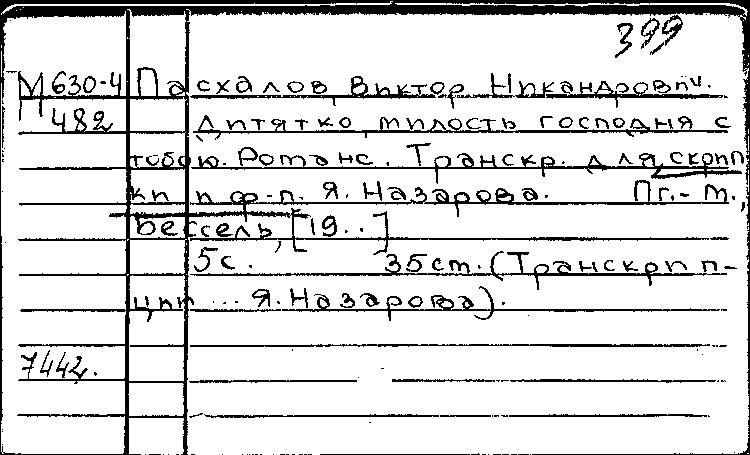 399
М630-4 Пасхалов, Виктор Никандрович.
482 Дитятко, милость господня с
тобою. Романс. Транскр. для скрип
ки и ф-п. Я. Назарова. Пг.- М.,
Бессель, [19..]
5с. 35см. (Транскрипп-
ции ... Я. Назарова).
7442.